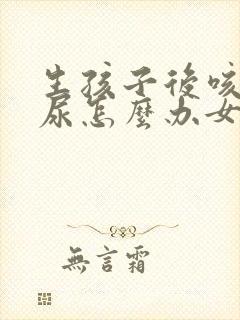 生孩子後咳
尿怎麼办女
無言霜